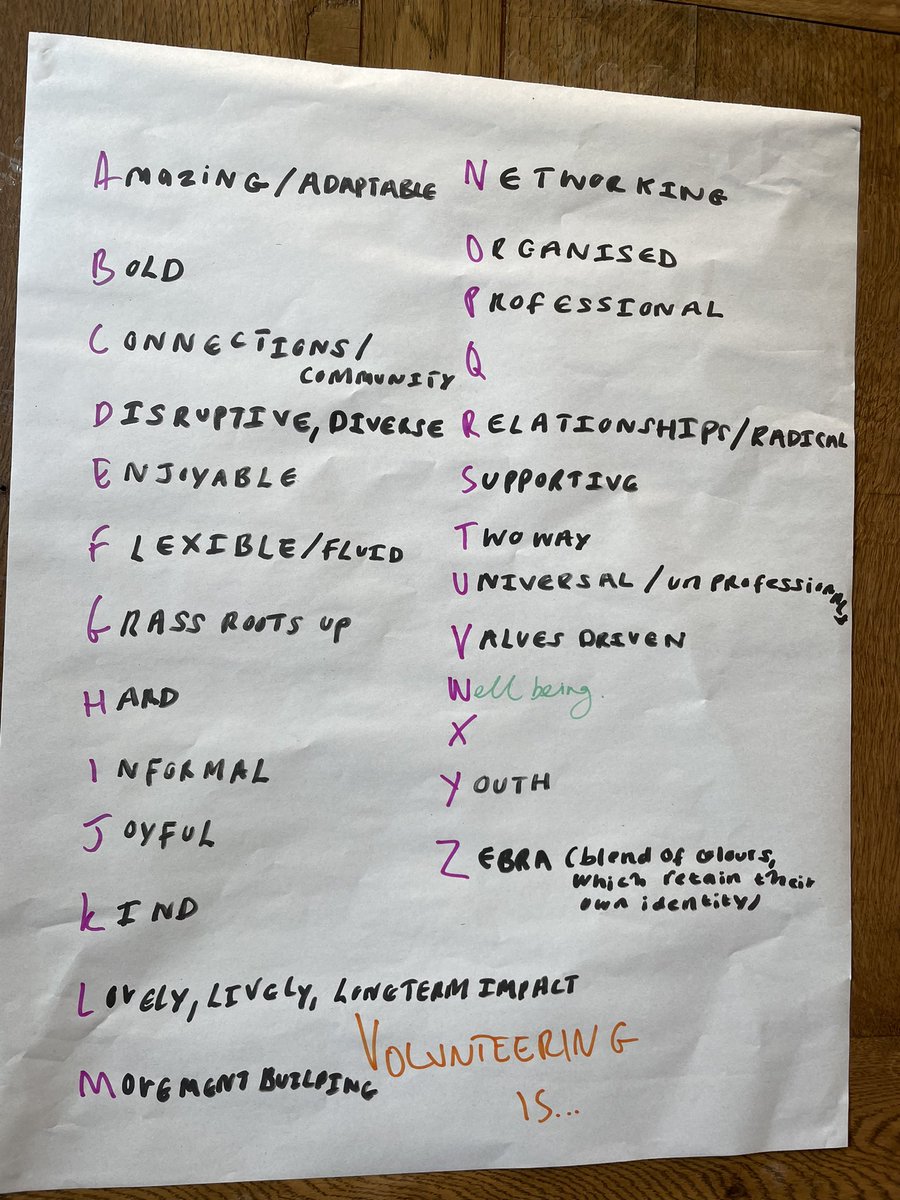 AMAZING/ADAPTABLE
BOLD
CONNECTIONS/
COMMUNITY
DISRUPTIVE, DIVERSE
ENJOYABLE
FLEXIBLE/FLUID
GRASS ROOTS UP
HARD
INFORMAL
JOYFUL
KIND
LOVELY, LIVELY, LONGTERM IMPACT
MOVEMENT BUILDING
NETWORKING
ORGANISED
PROFESSIONAL
Q
RELATIONSHIPS/RADICAL
SUPPORTIVE
TWO WAY
UNIVERSAL/unprofessionals
VALUES DRIVEN
Well being.
X
YOUTH
ZEBRA (blend of colours,
which retain their
own identity)
VOLUNTEERING
IS...